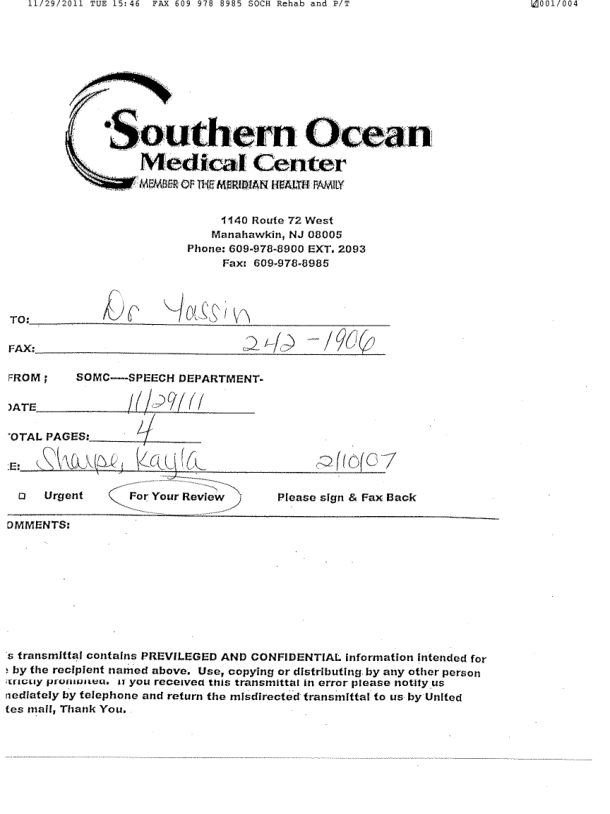 11/29/2011 TUE 15:46 FAX 609 978 8985 SOCH Rehab and P/T 001/004
Southern Ocean
Medical Center
MEMBER OF THE MERIDIAN HEALTH FAMILY
1140 Route 72 West
Manahawkin, NJ 08005
Phone: 609-978-8900 EXT. 2093
Fax: 609-978-8985
TO: Dr Yassin
FAX: 242-1906
FROM ; SOMC----SPEECH DEPARTMENT-
DATE 11/29/11
OTAL PAGES: 4
E: Sharpe, Kayla 2/10/07
Urgent For Your Review Please sign & Fax Back
OMMENTS:
s transmittal contains PREVILEGED AND CONFIDENTIAL information intended for
by the recipient named above. Use, copying or distributing by any other person
trictly prohibited. If you received this transmittal in error please notify us
mediately by telephone and return the misdirected transmittal to us by United
tes mail, Thank You.